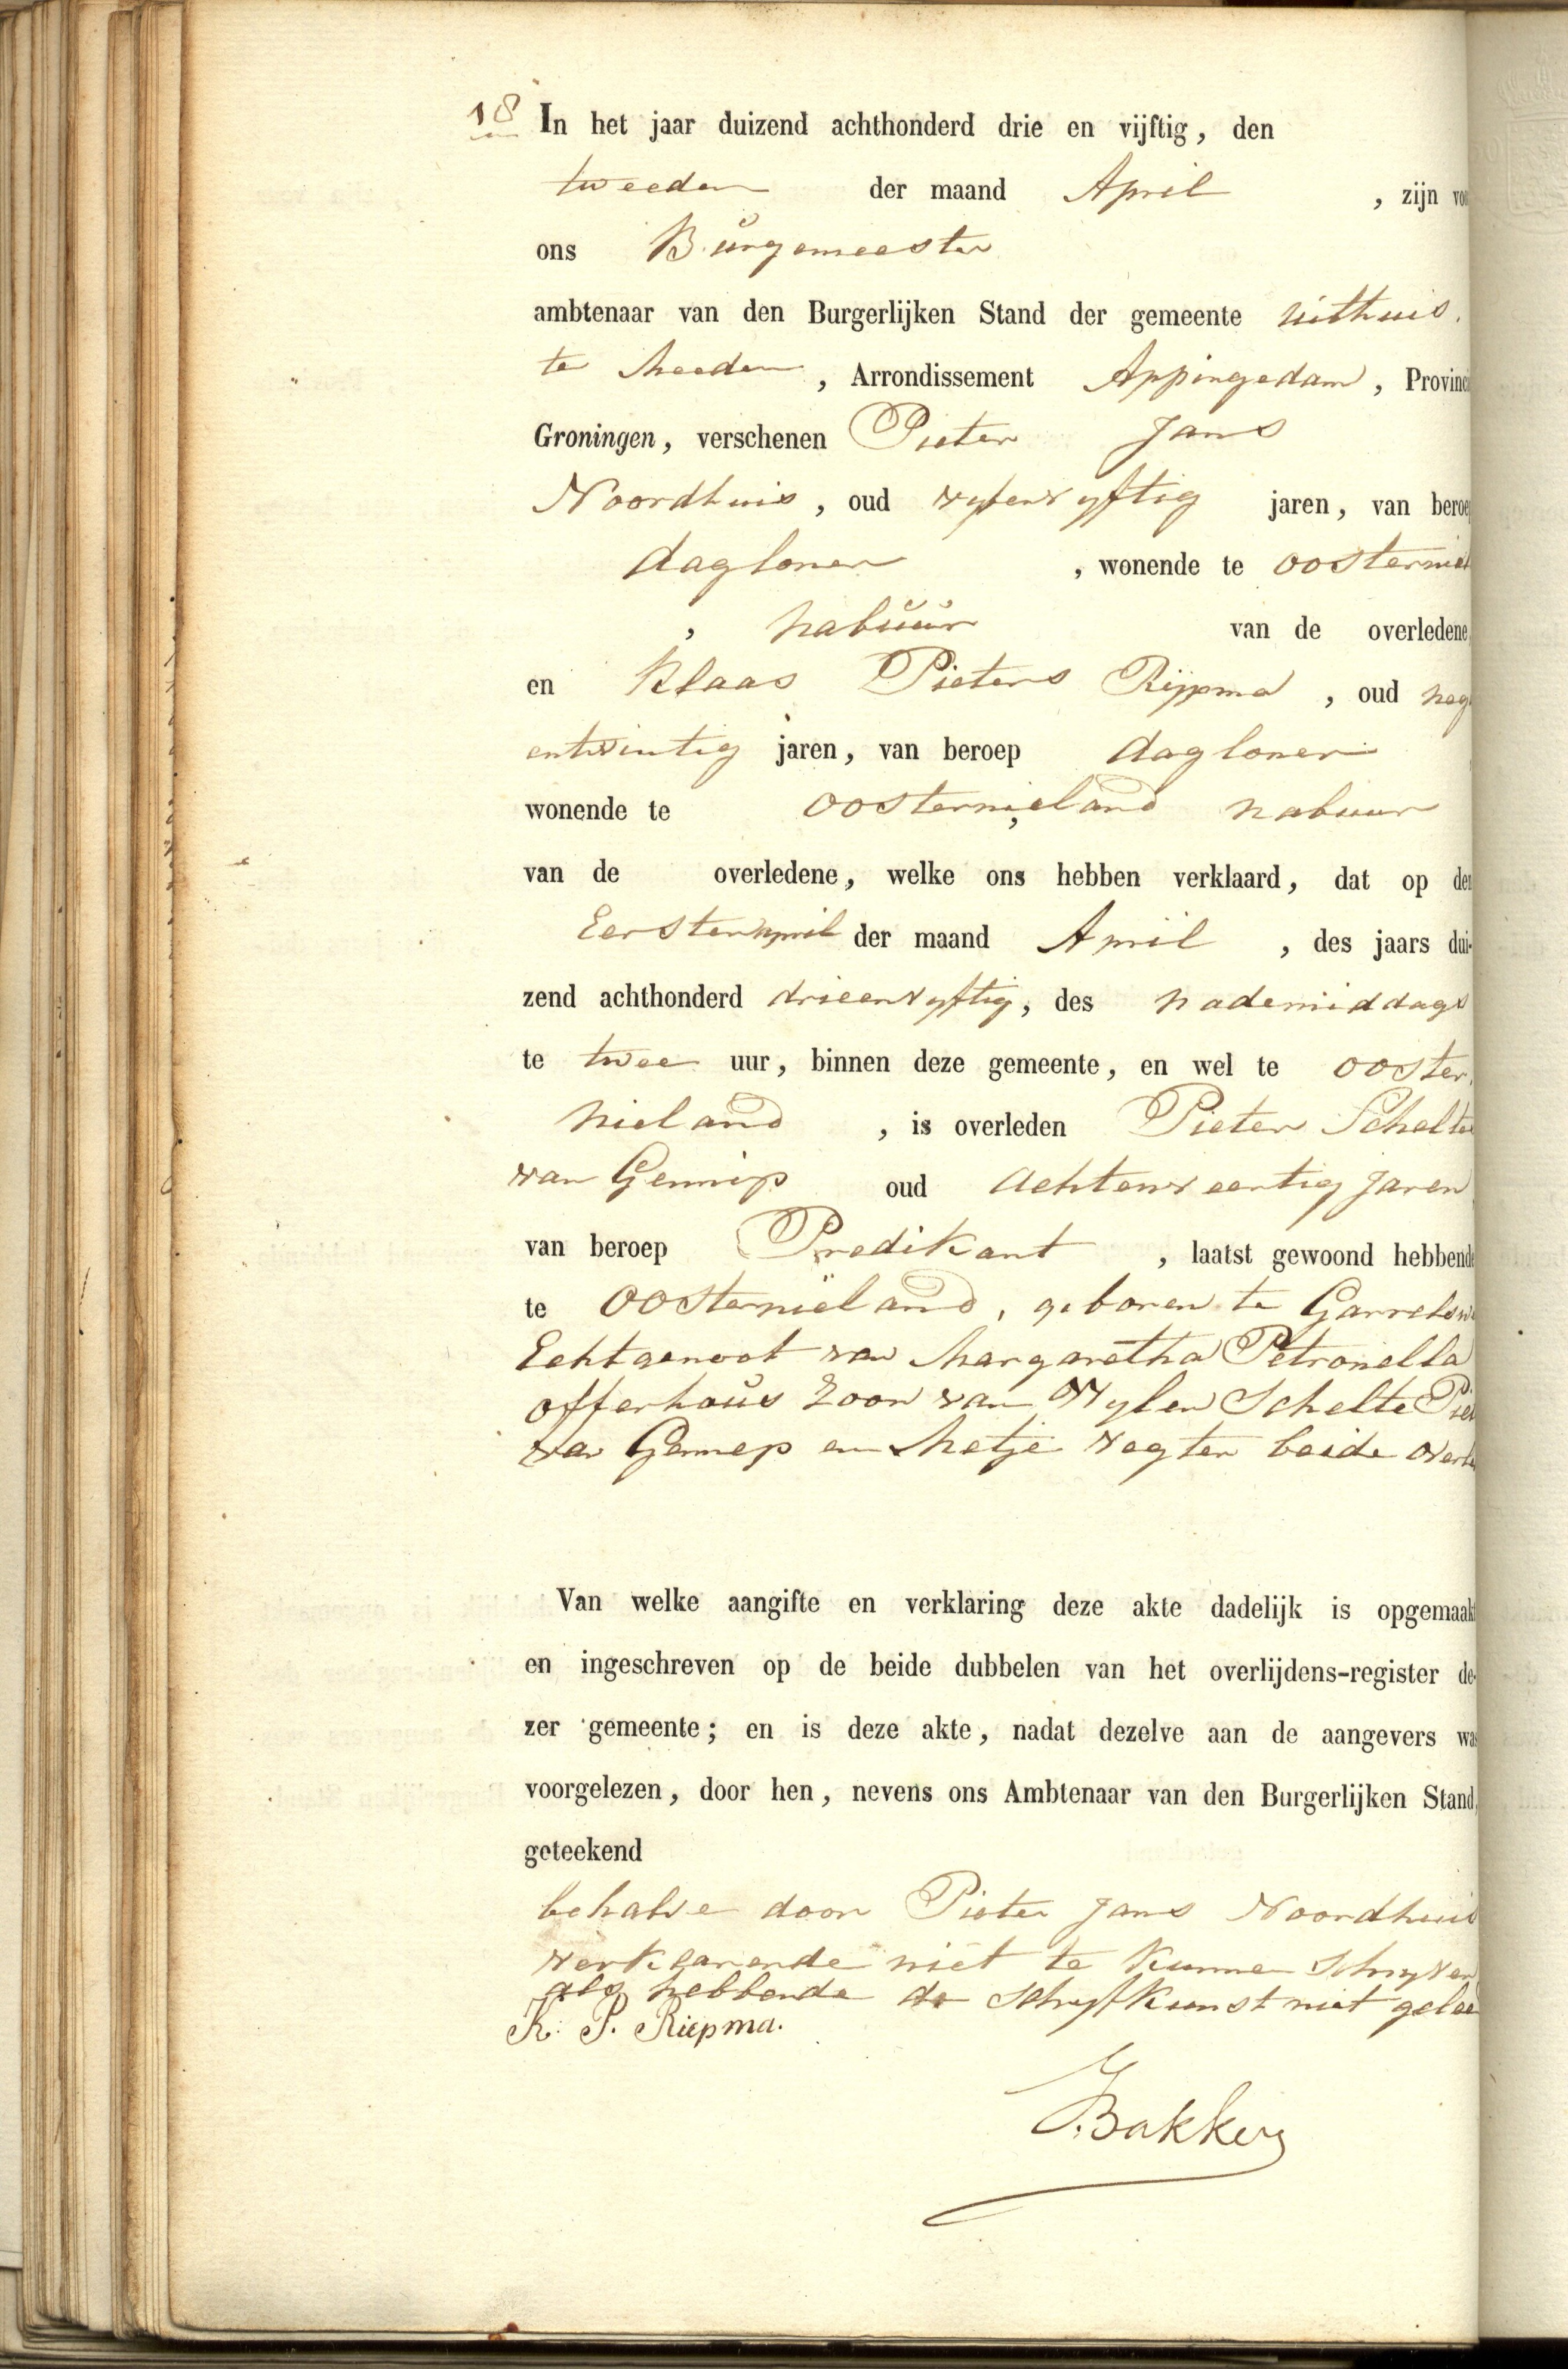 18 In het jaar duizend achthonderd drie en vijftig, den
tweeden der maand April , zijn voo
ons Burgemeester
ambtenaar van den Burgerlijken Stand der gemeente uithuis.
ter meeden , Arrondissement Appingedam , Provinc
Groningen, verschenen Pieter Jans
Noordhuis , oud vyfenvyftig jaren, van beroe
dagloner , wonende te oosterniel
, nabuur van de overledene,
en Klaas Pieters Riepma , oud neg
entwintig jaren, van beroep dagloner
wonende te oosternieland , nabuur
van de overledene, welke ons hebben verklaard, dat op den
Eersten April der maand April , des jaars dui-
zend achthonderd drieenvyftig, des nademiddags
te twee uur, binnen deze gemeente, en wel te ooster
nieland , is overleden Pieter Schelte
van Gennip oud achtenveertig jaren
van beroep Predikant , laatst gewoond hebbende
te oosternieland, geboren te Garrelsw
Echtgenoot van Margaretha Petronella
offerhaus Zoon van Wylen Schelte Piet
van Gennep en Metje Vegter beide overl
Van welke aangifte en verklaring deze akte dadelijk is opgemaakt
en ingeschreven op de beide dubbelen van het overlijdens-register de-
zer gemeente; en is deze akte, nadat dezelve aan de aangevers was
voorgelezen, door hen, nevens ons Ambtenaar van den Burgerlijken Stand,
geteekend
behalve door Pieter Jans Noordhuis
verklarende niet te kunnen schryven
als hebbende de schryfkunst niet gelee
K. P. Riepma.
J. Bakker